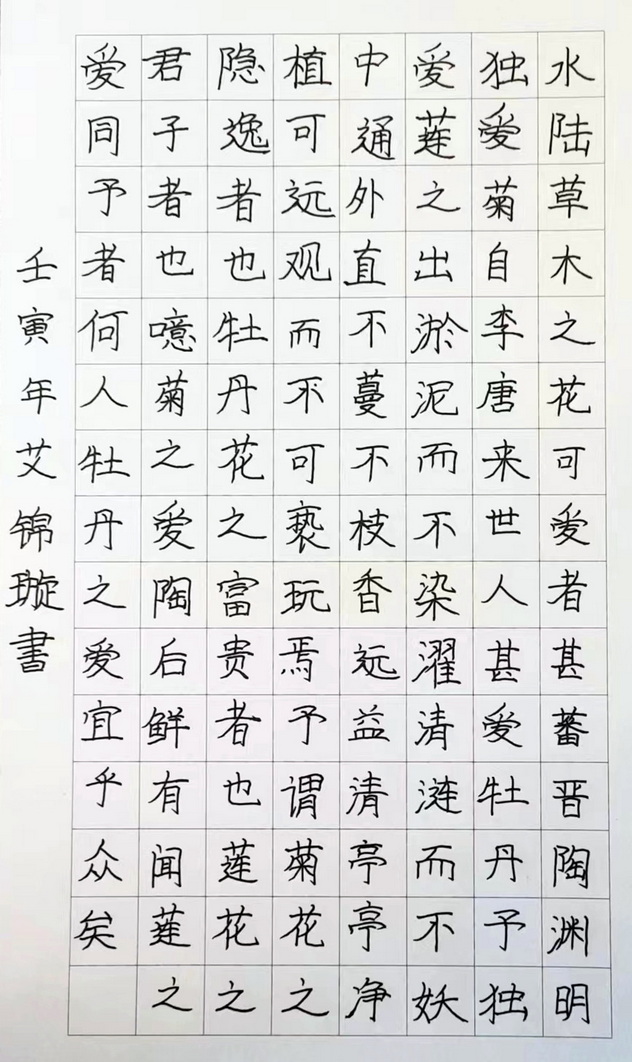 水陆草木之花可爱者甚蕃晋陶渊明
独爱菊自李唐来世人甚爱牡丹予独
爱莲之出淤泥而不染濯清涟而不妖
中通外直不蔓不枝香远益清亭亭净
植可远观而不可亵玩焉予谓菊花之
隐逸者也牡丹花之富贵者也莲花之
君子者也噫菊之爱陶后鲜有闻莲之
爱同予者何人牡丹之爱宜乎众矣
壬寅年艾锦璇書